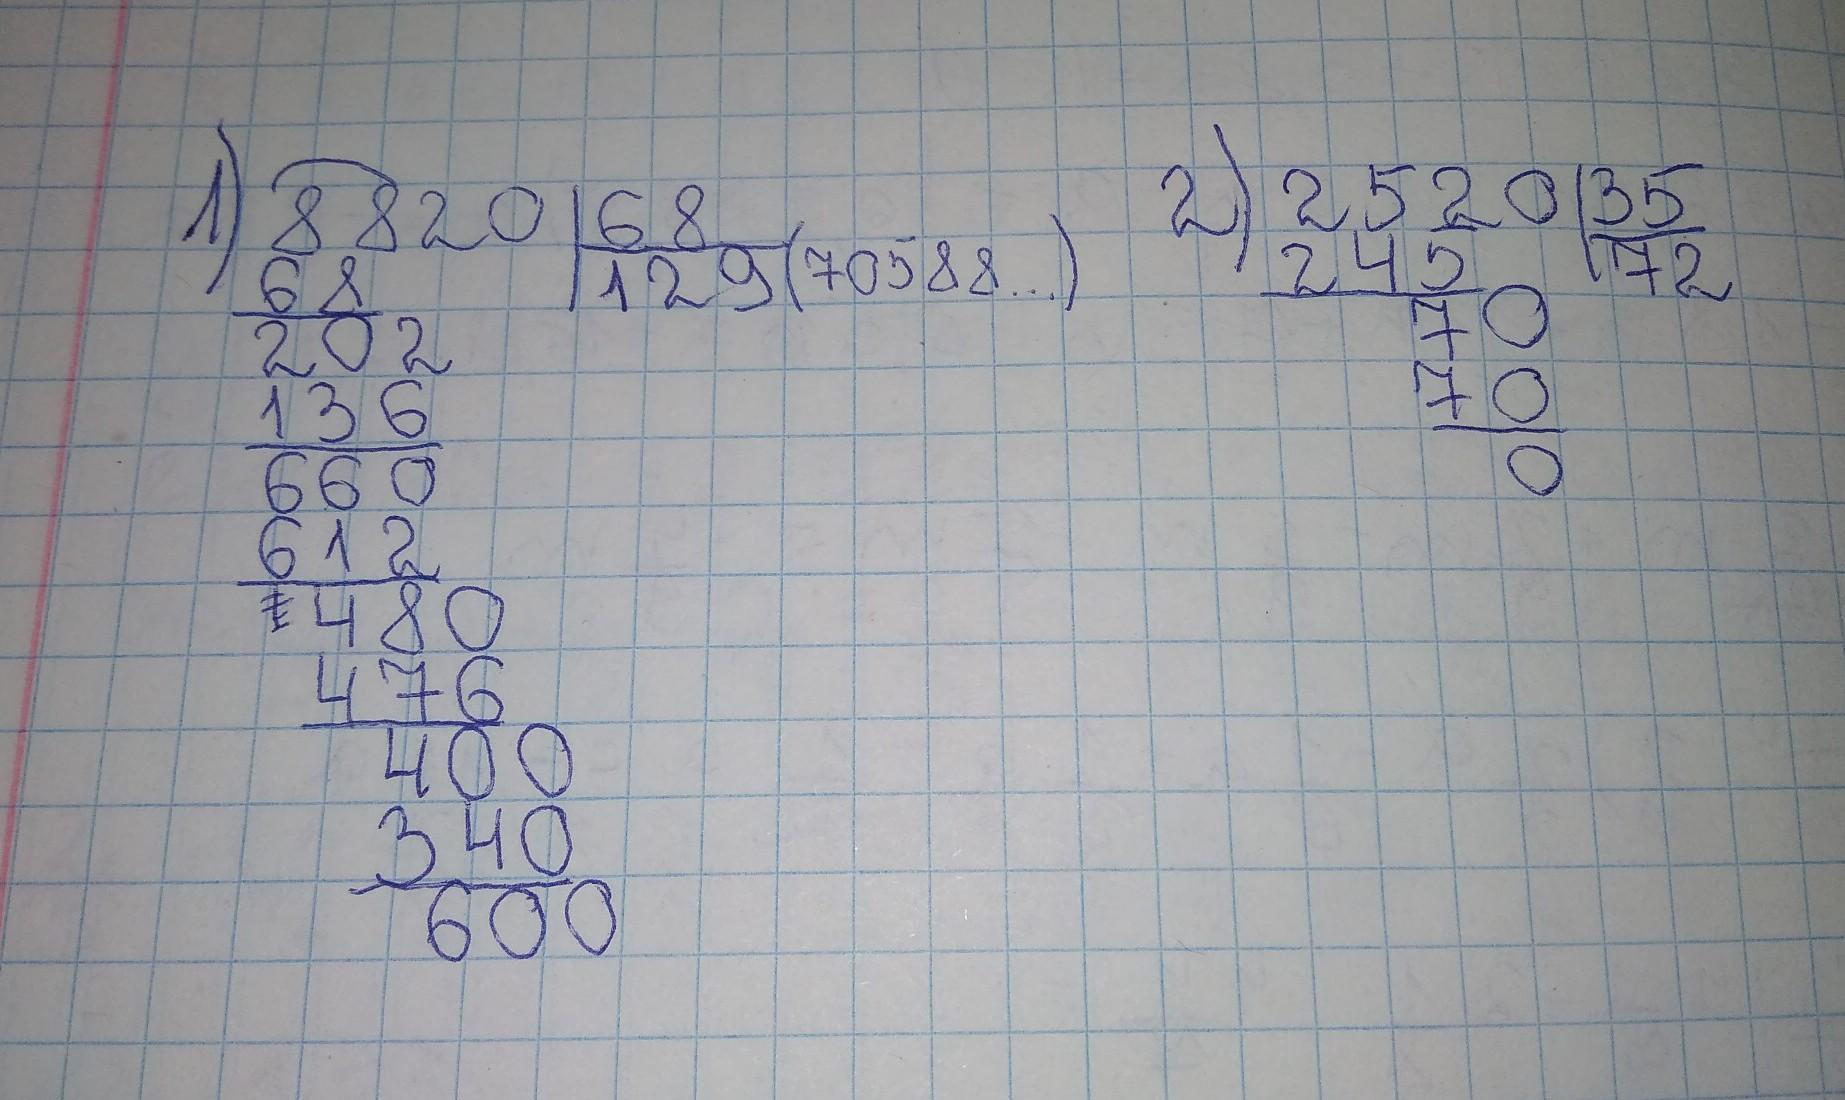 1) 8820 | 68
68 | 129(70588...)
202
136
660
612
480
476
400
340
600
2) 2520 | 35
245 | 72
70
70
0